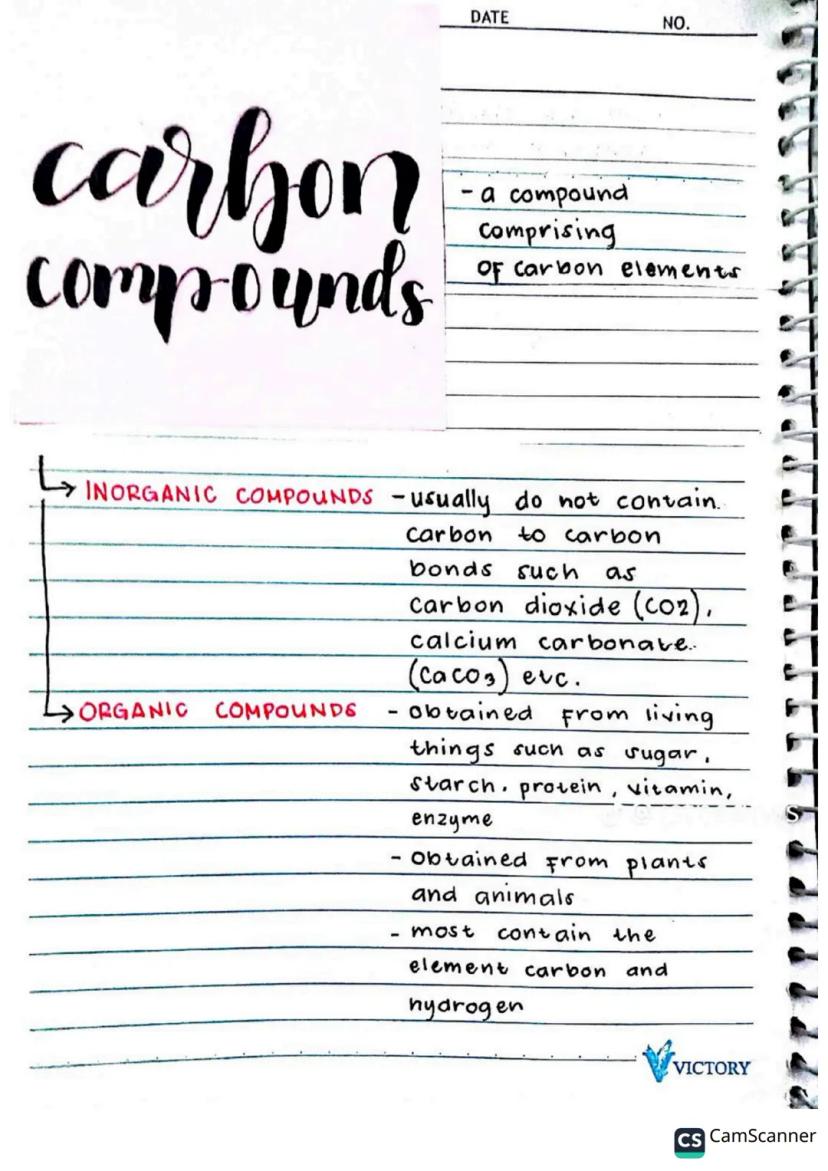 DATE NO.
carbon
compounds
- a compound
comprising
of carbon elements
INORGANIC COMPOUNDS - usually do not contain
carbon to carbon
bonds such as
carbon dioxide (CO2),
calcium carbonate
(CaCO3) etc.
ORGANIC COMPOUNDS - obtained from living
things such as sugar,
starch, protein, vitamin,
enzyme
- obtained from plants
and animals
- most contain the
element carbon and
hydrogen
VICTORY
CS CamScanner